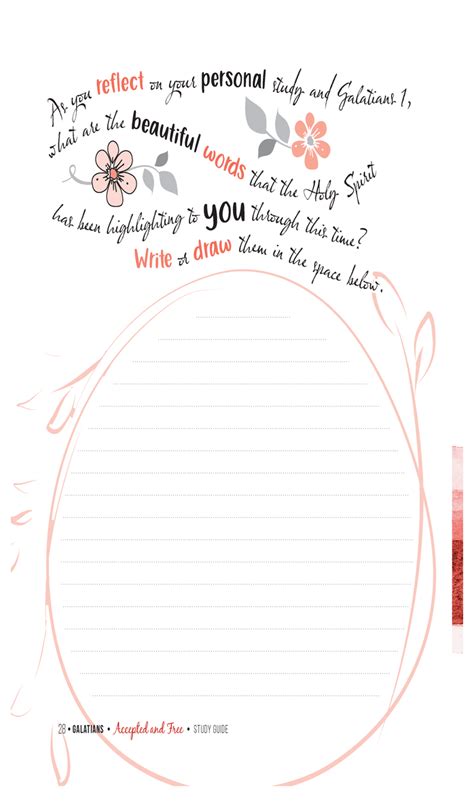 As you reflect on your personal study and Galatians 1,
what are the beautiful words that the Holy Spirit
has been highlighting to you through this time?
Write or draw them in the space below.
28 • GALATIANS • Accepted and Free • STUDY GUIDE